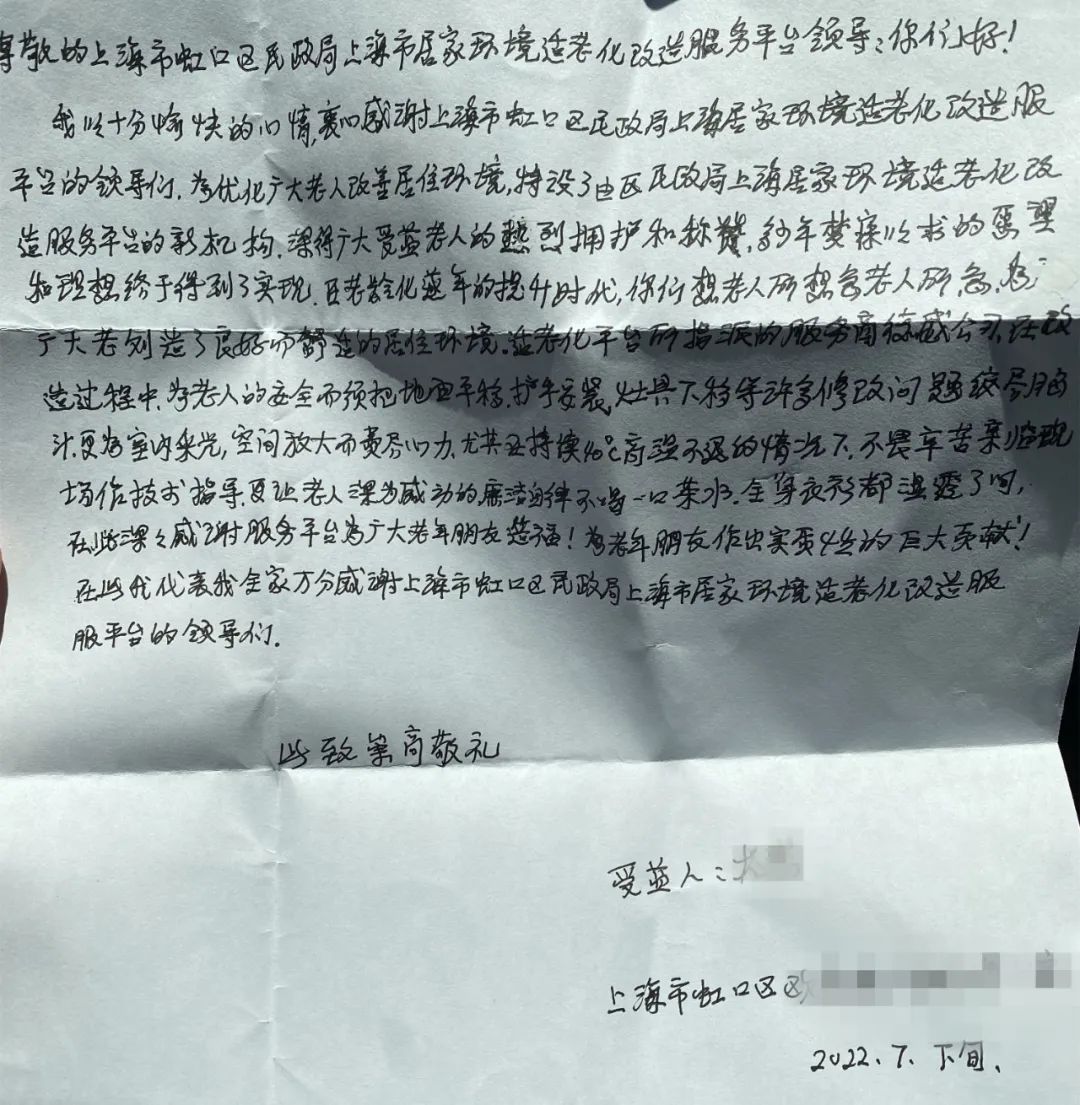 尊敬的上海市虹口区民政局上海市居家环境适老化改造服务平台领导:你们好!
我以十分愉快的心情,衷心感谢上海市虹口区民政局上海居家环境适老化改造服
平台的领导们.为优化广大老人改善居住环境,特设了由区民政局上海居家环境适老化改
造服务平台的新机构.深得广大受益老人的热烈拥护和称赞,多年梦寐以求的愿望
和理想终于得到了实现.在老龄化逐年的提升时代,你们想老人所想急老人所急,为
广大老创造了良好而舒适的居住环境.适老化平台所指派的服务商 公司,在改
造过程中,为老人的安全而须把地面平移.护手安装,灶具下移等许多修改问题绞尽脑
汁.更为室内采光,空间放大而费尽心力.尤其在持续40℃高温不退的情况下.不畏辛苦亲临现
场作技术指导.更让老人深为感动的.廉洁自律不喝一口茶水.全身衣衫都湿透了
在此深々感谢服务平台为广大老年朋友造福!为老年朋友作出实质 的巨大贡献!
在此我代表我全家万分感谢上海市虹口区民政局上海市居家环境适老化改造服
服平台的领导们.
此致崇高敬礼
受益人:
上海市虹口区欧
2022.7.下旬.